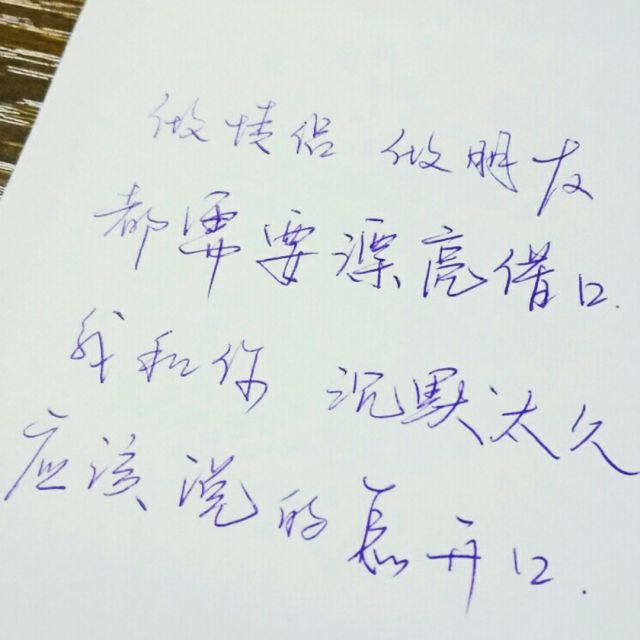 做情侣 做朋友
都需要漂亮借口.
我和你 沉默太久
应该说的怎开口.